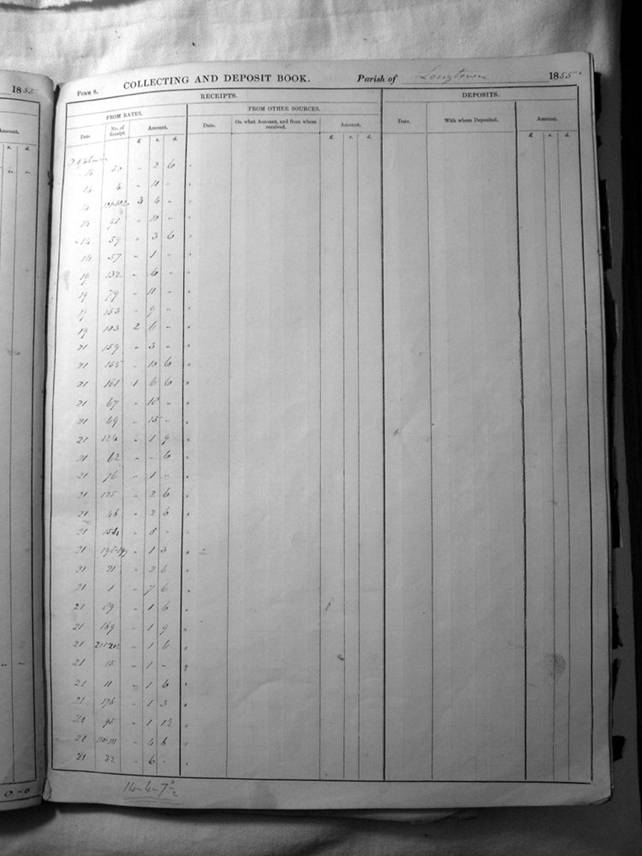 1855
FORM 8. COLLECTING AND DEPOSIT BOOK. Parish of Longtown 1855
RECEIPTS. DEPOSITS.
FROM RATES. FROM OTHER SOURCES.
Date. No. of Receipt. Amount. Date. On what Account, and from whom received. Amount. Date. With whom Deposited. Amount.
£ s. d. £ s. d. £ s. d.
14 - 2 6
14 6 - 10 -
14 3 4 -
14 - 10 -
14 59 - 3 6
14 57 - 1 -
19 132 - 6 -
19 79 - 11 -
19 153 - 9 -
19 103 2 6 -
21 159 - 3 -
21 165 - 13 6
21 161 1 6 6
21 67 - 10 -
21 69 - 15 -
21 126 - 1 9
21 62 - - 6
21 76 - 1 -
21 125 - 2 6
21 46 - 2 6
21 - 8 -
21 - 1 3
21 21 - 2 6
21 1 - 7 6
21 59 - 1 6
21 169 - 1 9
21 - 1 6
21 15 - 1 -
21 11 - 1 6
21 176 - 1 3
21 95 - 1
21 110-111 - 4 6
21 22 - 6 -